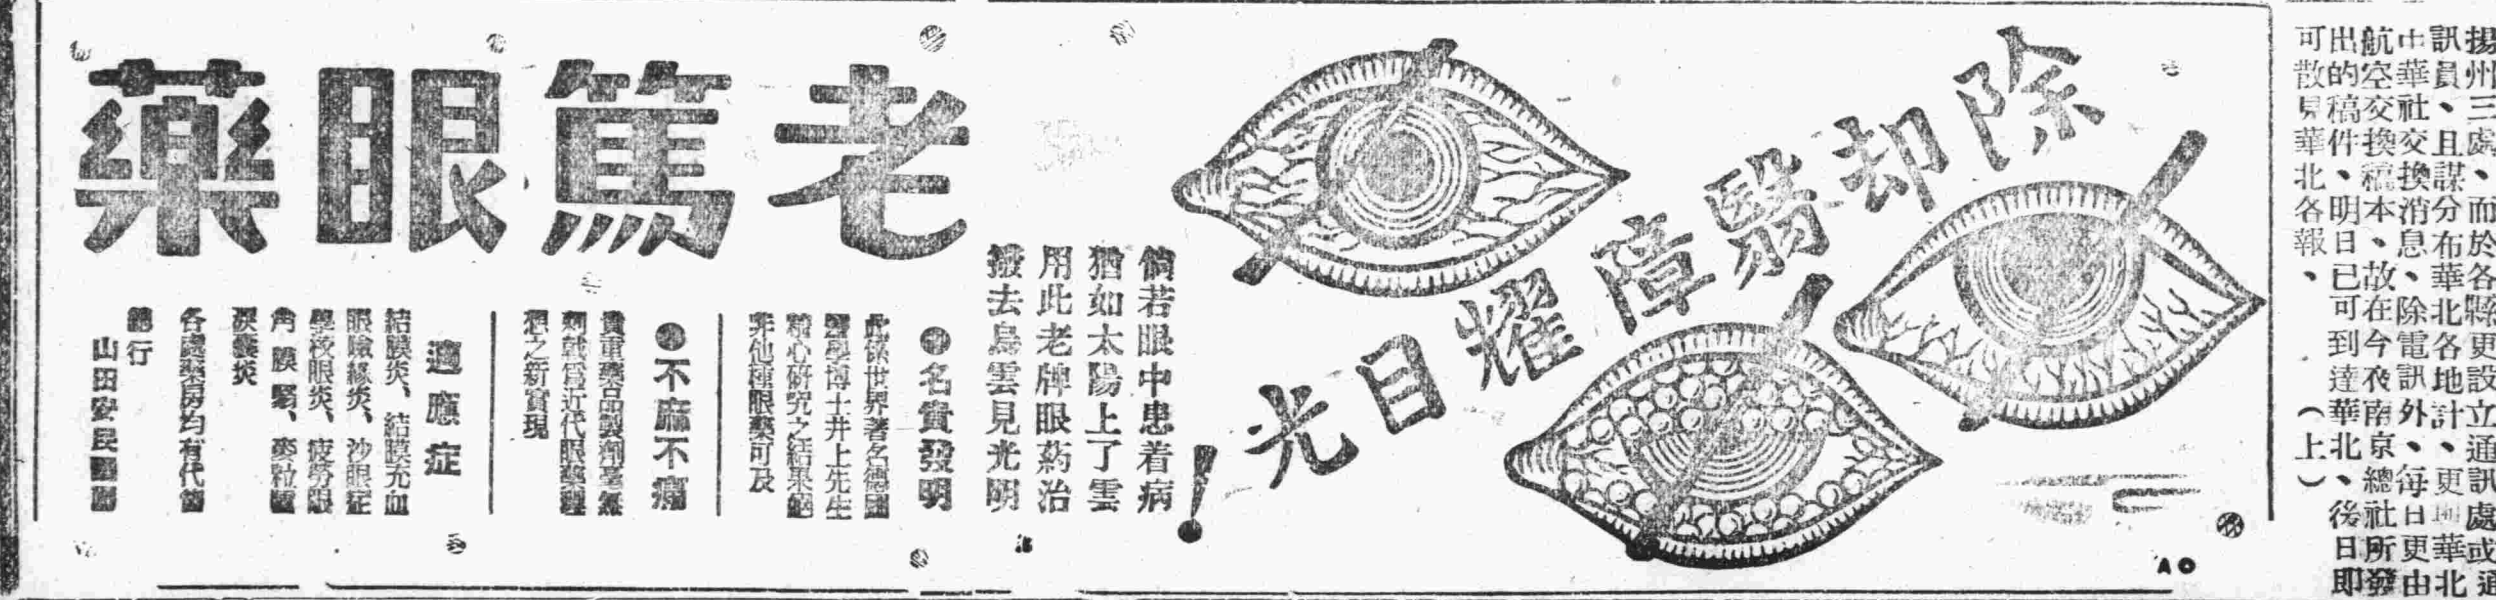 揚州三處、而於各縣更設立通訊處或通
訊員、且謀分布華北各地計、更與華北
中華社交換消息、除電訊外、每日更由
航空交換稿本、故在今夜南京總社所發
出的稿件、明日已可到達華北、後日即
可散見華北各報、（上）
除却翳障耀目光！
倘若眼中患着病
猶如太陽上了雲
用此老牌眼葯治
撥去烏雲見光明
老篤眼藥
名貴發明
此係世界著名德國
醫學博士井上先生
精心研究之結果絕
非他種眼藥可及
不痲不痛
貴重藥品製劑毫無
刺戟爲近代眼藥理
想之新實現
適應症
結膜炎、結膜充血
眼瞼緣炎、沙眼症
學校眼炎、疲勞眼
角膜翳、麥粒腫
淚囊炎
各處藥房均有代售
總行
山田安民藥房
AO